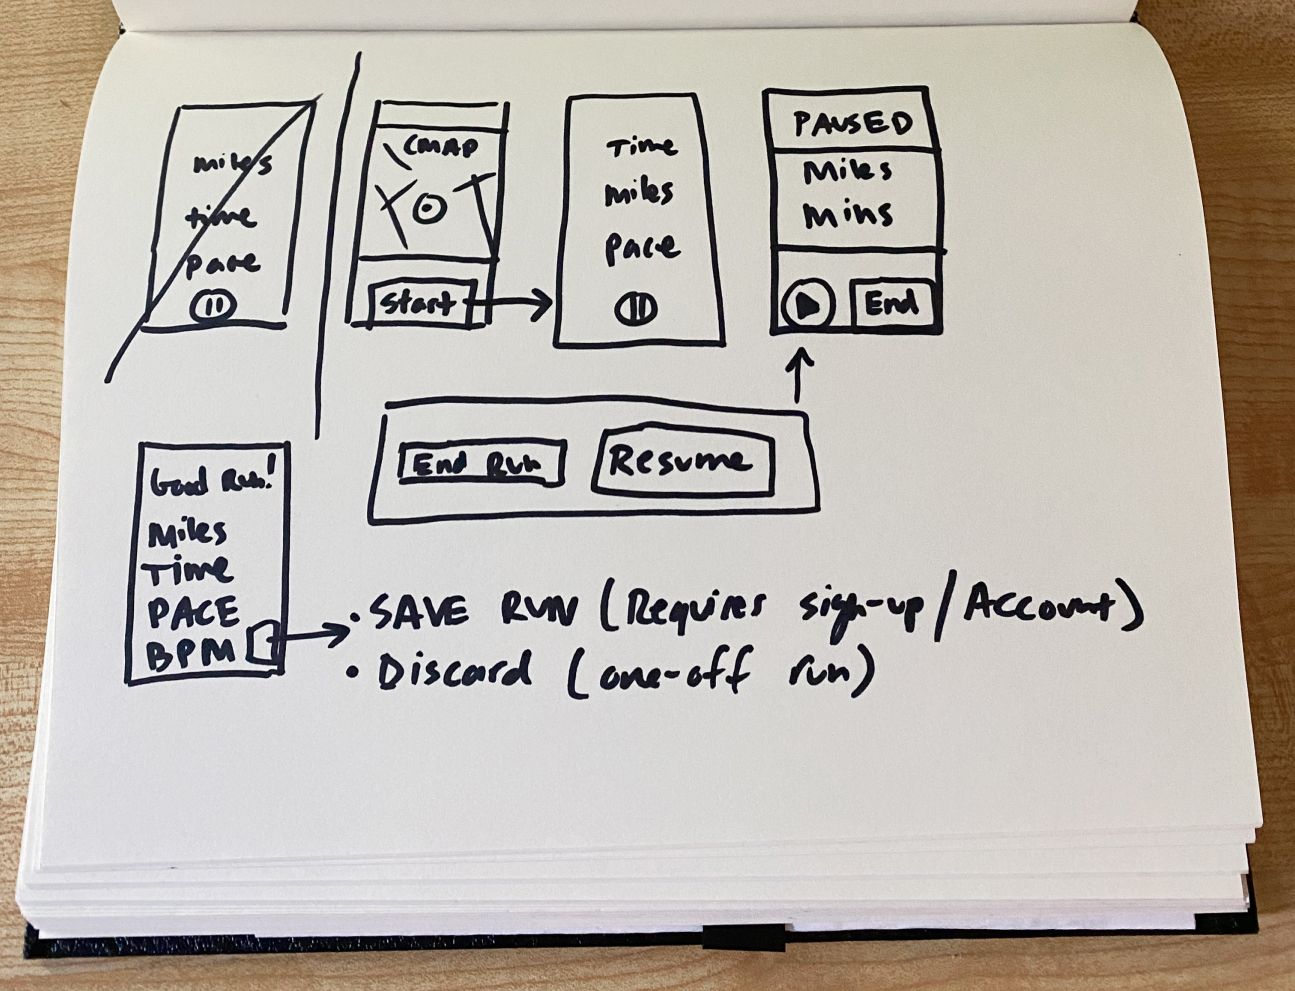 miles
time
pace
CMAP
Start
Time
miles
pace
PAUSED
Miles
mins
End
End Run
Resume
Good Run!
Miles
Time
PACE
BPM
• SAVE RUN (Requires sign-up/Account)
• Discard (one-off run)